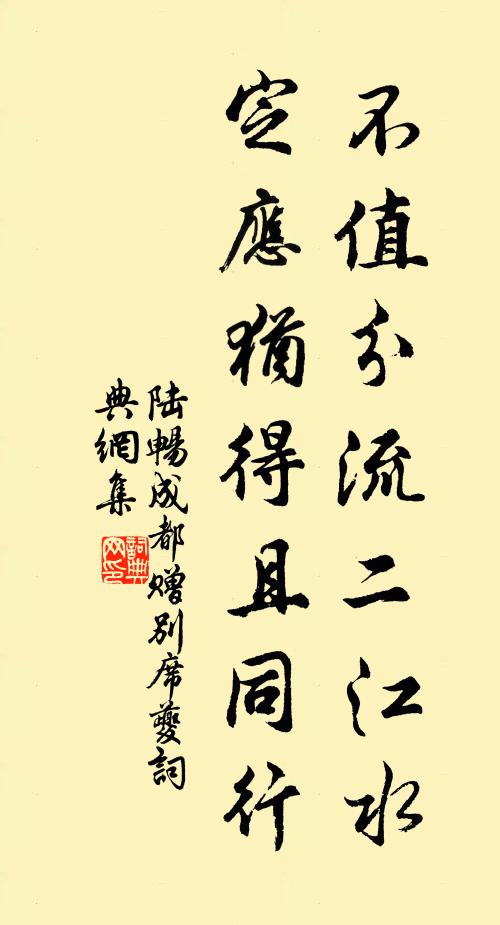 不值分流二江水
定應猶得且同行
陸暢成都贈別席夔詞
典網集
詞典網印